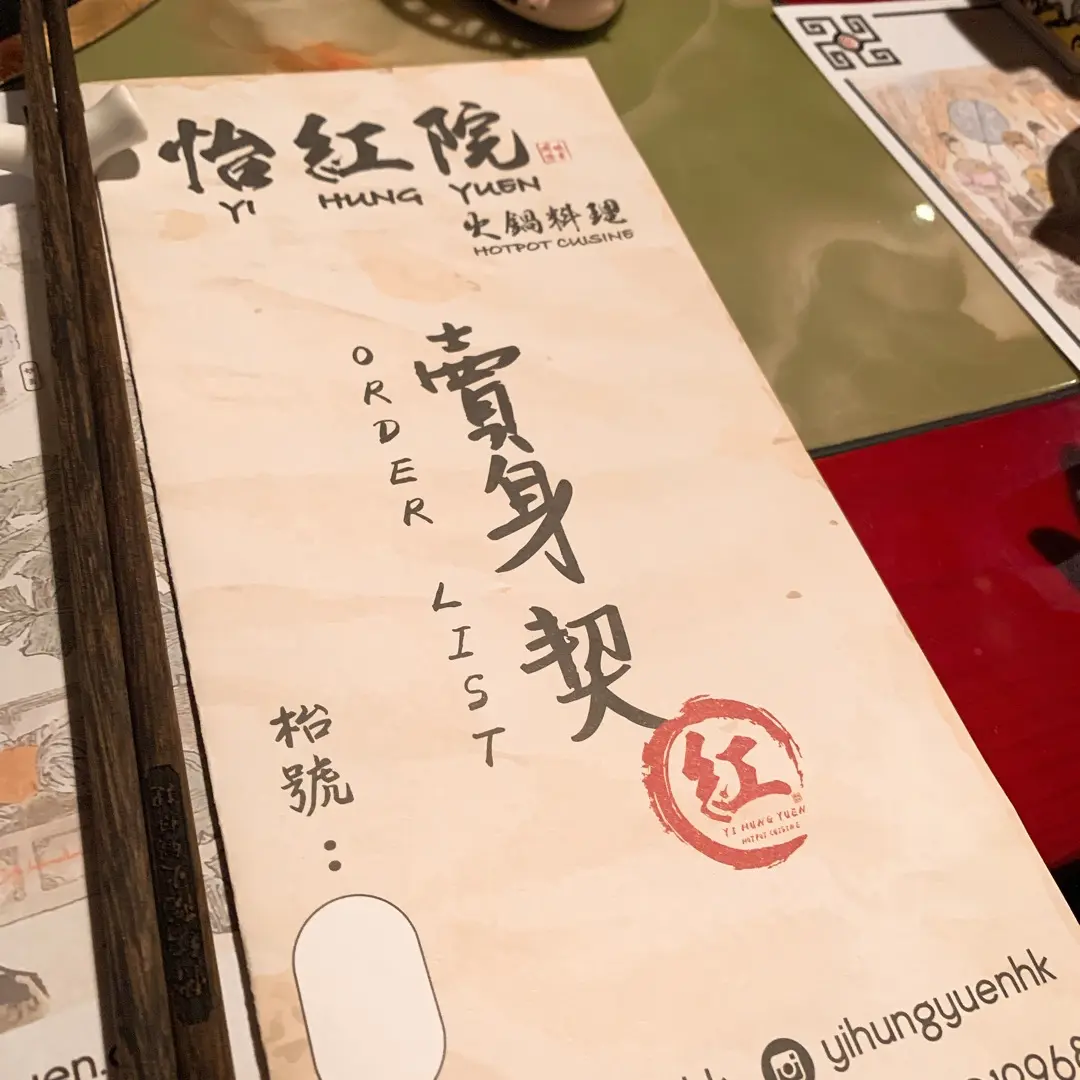 怡紅院
YI HUNG YUEN
火鍋料理
HOTPOT CUISINE
賣身契
ORDER LIST
枱號：
紅
YI HUNG YUEN
HOTPOT CUISINE
yihungyuenhk